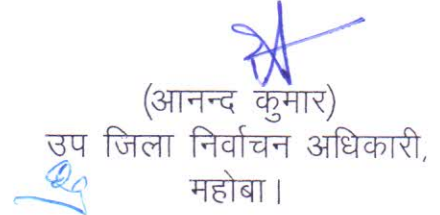 (आनन्द कुमार)
उप जिला निर्वाचन अधिकारी,
महोबा।